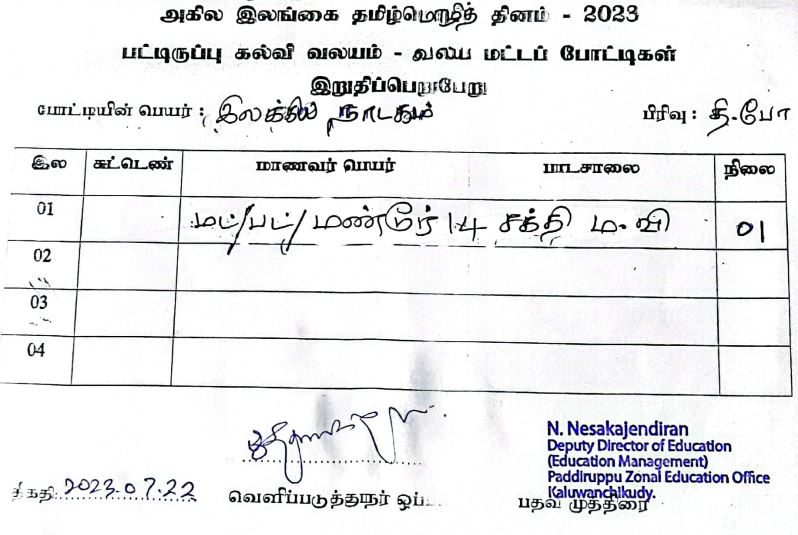 அகில இலங்கை தமிழ்மொழித் தினம் - 2023
பட்டிருப்பு கல்வி வலயம் - வலய மட்டப் போட்டிகள்
இறுதிப்பெறுபேறு
போட்டியின் பெயர் : இலக்கிய நாடகம் பிரிவு : தி.போ
இல சுட்டெண் மாணவர் பெயர் பாடசாலை நிலை
01 மட்/பட்/மண்டூர் 14 சக்தி ம.வி 01
02
03
04
N. Nesakajendiran
Deputy Director of Education
(Education Management)
Paddiruppu Zonal Education Office
Kaluwanchikudy.
திகதி: 2023.07.22 வெளிப்படுத்தாநர் பதவி முத்திரை